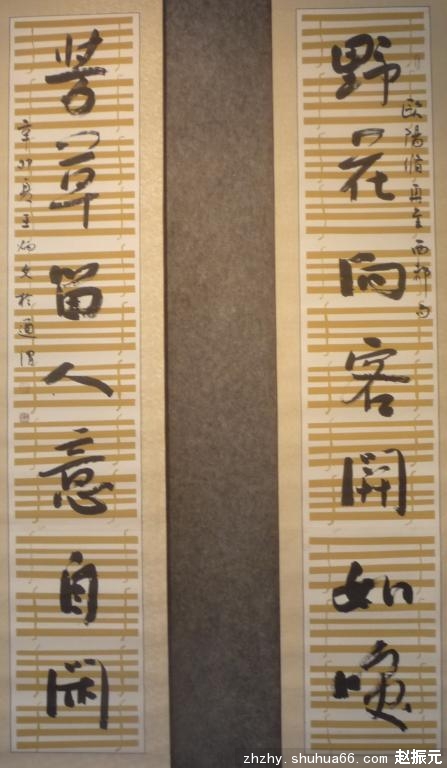 野花向客開如咲
歐陽脩再至西都句
芳草留人意自閑
辛卯夏王炳文於通渭
zhzhy.shuhua66.com 赵振元